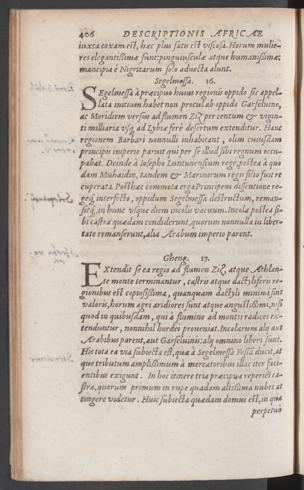 406 DESCRIPTIONIS AFRICAE
iuxta coxam est, hæc plus satis est viscosa. Horum mulie-
res elegantissimæ sunt: pinguiusculæ atque humanissimæ:
mancipia è Nigritarum solo aduecta alunt.
Segelmessa. 16.
SEgelmessa à præcipuo huius regionis oppido sic appel-
lata initium habet non procul ab oppido Garseluino,
ac Meridiem versus ad flumen Ziz per centum & vigin-
ti milliaria vsq; ad Lybiæ ferè desertum extenditur. Hanc
regionem Barbari nonnulli inhabitant, olim cuiusdam
principis imperio parent qui per se illud sibi regnum occu-
pabat. Deinde à Iosepho Luntunensium rege, postea à quo
dam Muhaidin, tandem & Marinorum regis filio fuit re
cuperata. Posthac commota erga Principem dissentione re-
ge interfecto, oppidum Segelmessa destructum, reman-
sitq́; in hunc vsque diem incolis vacuum. Incolæ postea si-
bi castra quædam condiderunt, quorum nonnulla in liber-
tate remanserunt, alia Arabum imperio parent.
Cheng. 17.
EXtendit se ea regio ad flumen Ziz, atque Athlan-
te monte terminantur, castris atque dactyliferis re-
gionibus est copiosissima, quanquam dactyli minimi sint
valoris, horum agri aridiores sunt atque angustissimi, nisi
quod in quibusdam, qui à flumine ad montis radices ex-
tenduntur, nonnihil hordei proueniat. Incolarum alij aut
Arabibus parent, aut Garseluinis: alij omnino liberi sunt.
His tota ea via subiecta est, quæ à Segelmessa Fessa ducit, at
que tributum amplissimum à mercatoribus illac iter faci-
entibus exigunt. In hoc itinere tria præcipua reperies ca-
stra, quorum primum in rupe quadam altissima nubes at
tingere videtur. Huic subiecta quædam domus est, in qua
perpetuò